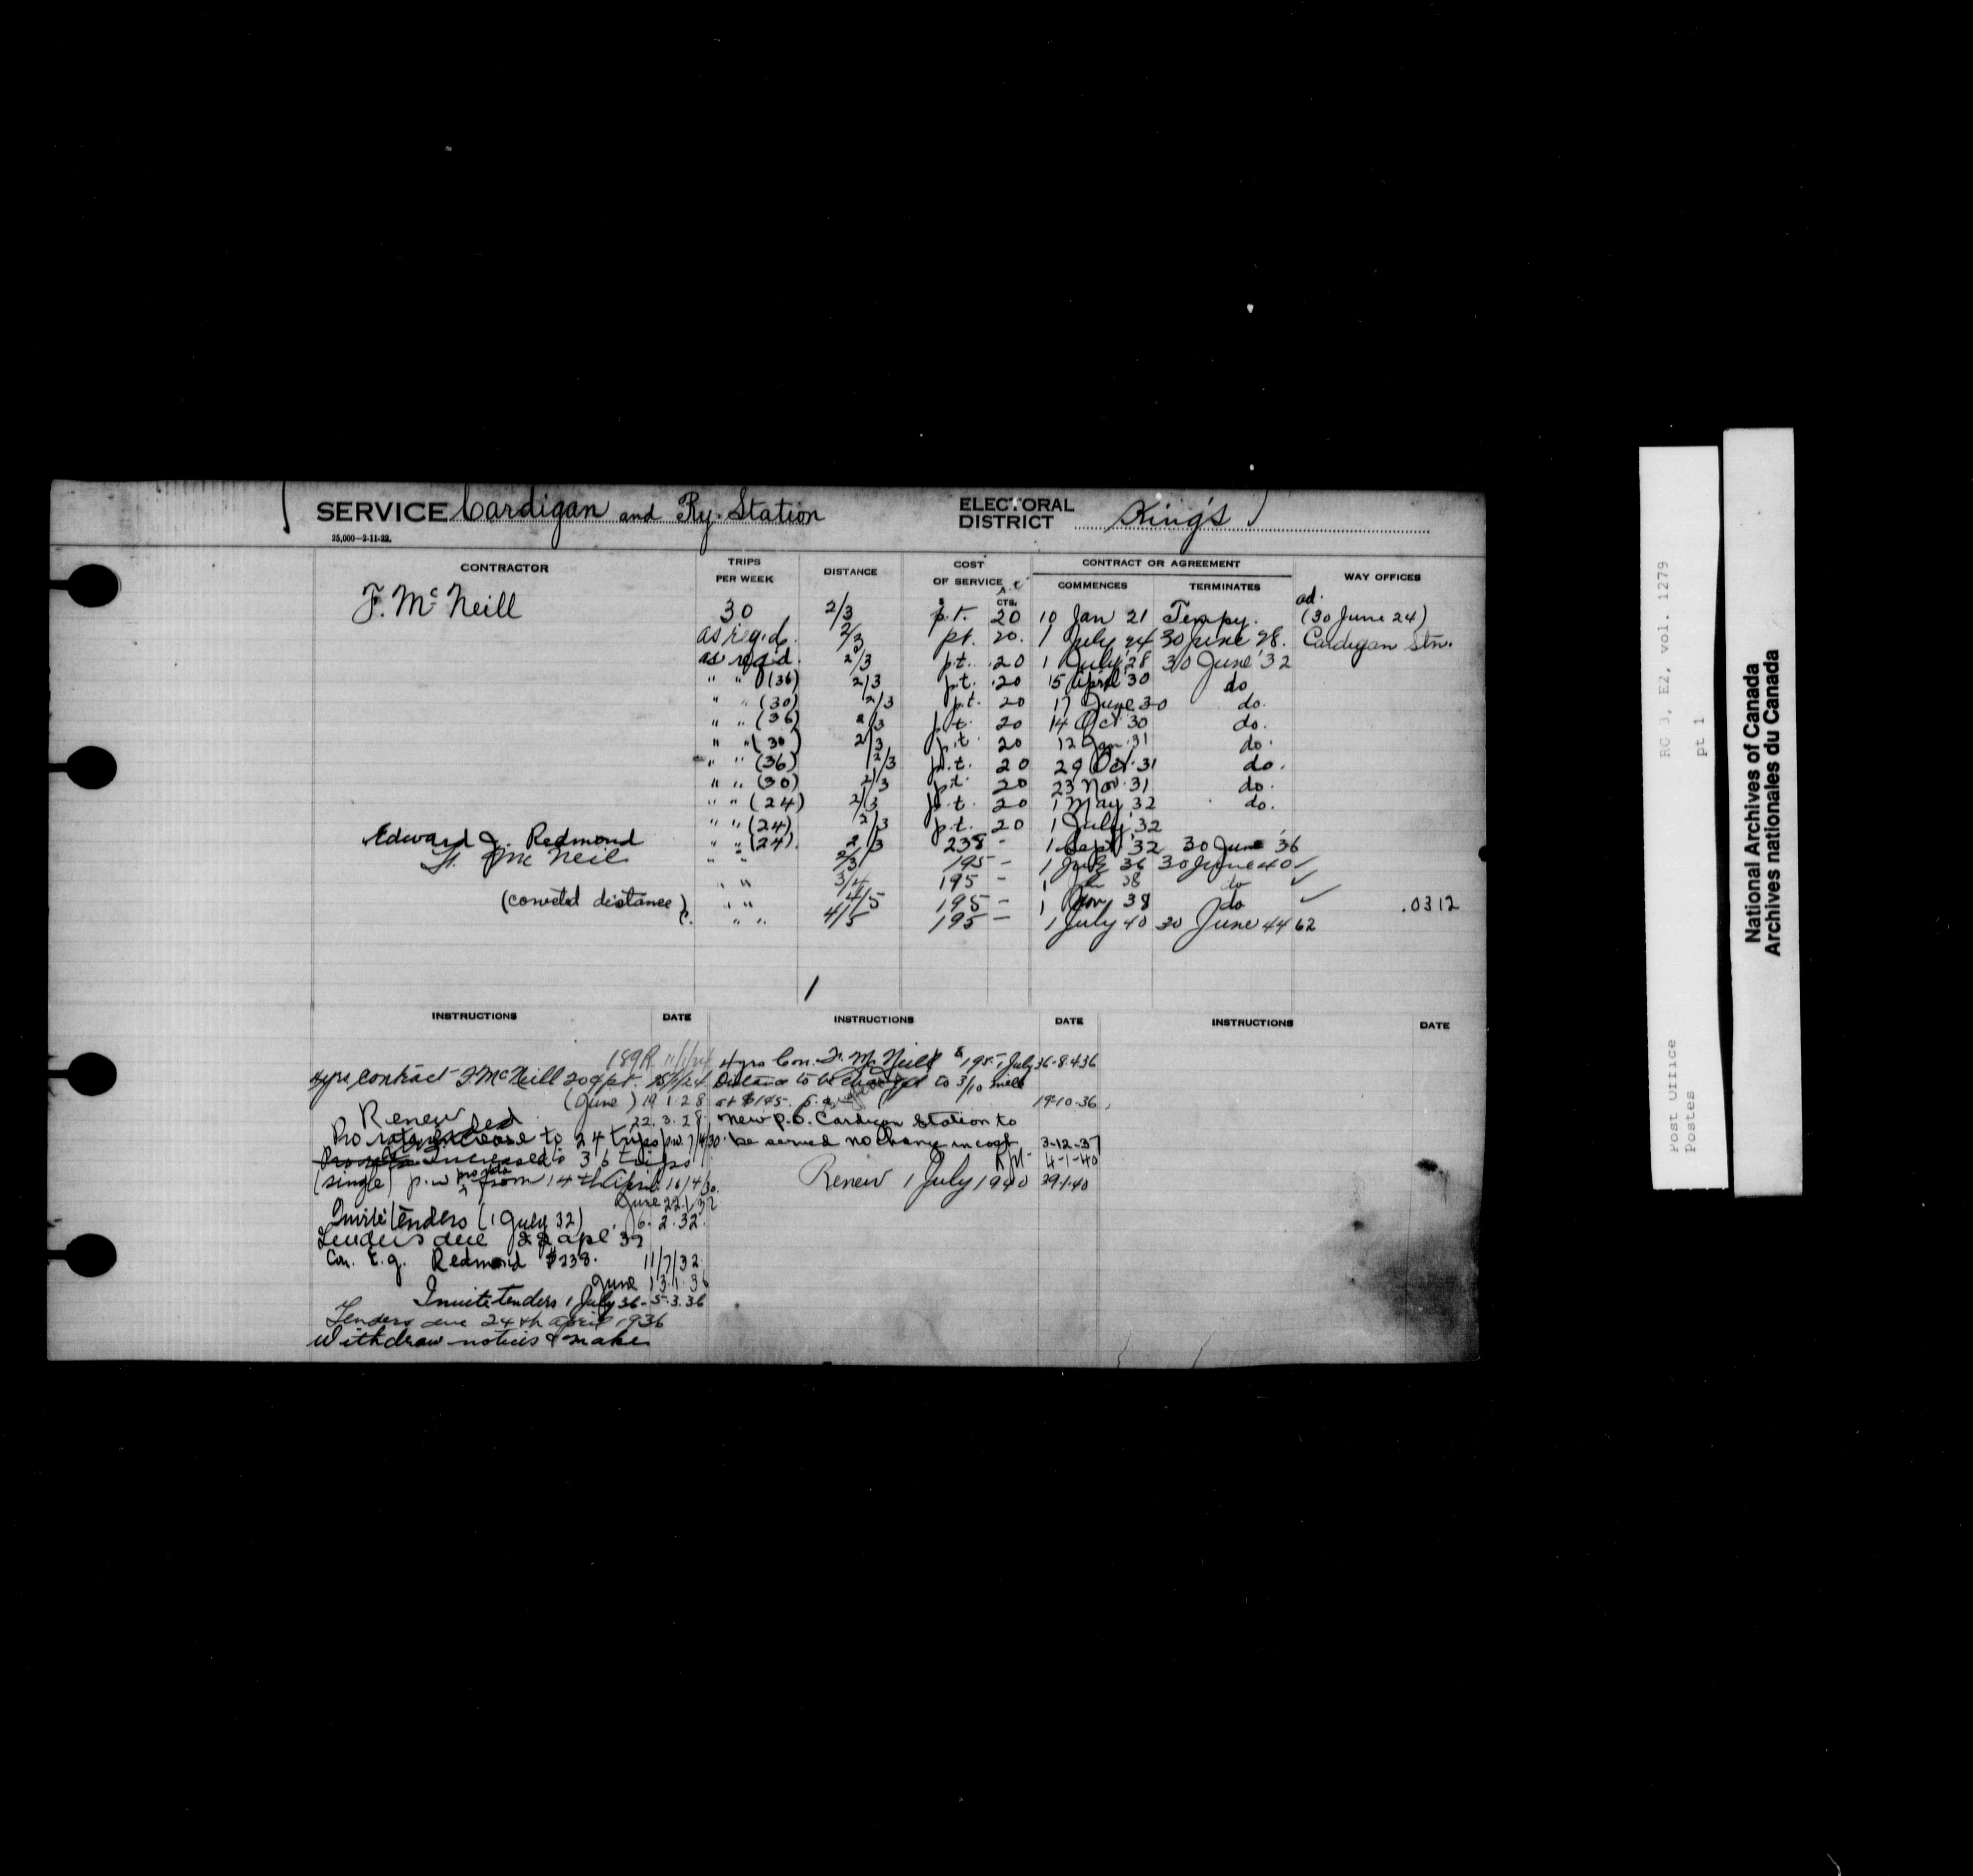 SERVICE Cardigan and Ry. Station ELECTORAL DISTRICT King's
25,000—2-11-22.
CONTRACTOR TRIPS PER WEEK DISTANCE COST OF SERVICE $ CTS. CONTRACT OR AGREEMENT COMMENCES TERMINATES WAY OFFICES
F. McNeill 30 2/3 p.t. 20 10 Jan 21 Tempy. (30 June 24)
as reqd. 2/3 pt. 20. 1 July 24 30 June 28. Cardigan Stn.
as reqd. 2/3 p.t. .20 1 July '28 30 June '32
" " (36) 2/3 p.t. .20 15 April '30 do
" " (30) 2/3 p.t. 20 17 June 30 do.
" " (36) 2/3 p.t. 20 14 Oct 30 do.
" " (30) 2/3 p.t. 20 12 Jan. 31 do.
" " (36) 2/3 p.t. 20 29 Oct. 31 do.
" " (30) 2/3 p.t. 20 23 Nov. 31 do.
" " (24) 2/3 p.t. 20 1 May 32 do.
" " (24) 2/3 p.t. 20 1 July '32
Edward J. Redmond " " (24) 2/3 238 – 1 Sept '32 30 June '36
McNeil " " 2/3 195 – 1 July 36 30 June 40 ✓
" " 3/4 195 – 1 38 do ✓
(corrected distance) " " 4/5 195 – 1 Nov 38 do ✓ .0312
" " 4/5 195 – 1 July 40 30 June 44 62
INSTRUCTIONS DATE INSTRUCTIONS DATE INSTRUCTIONS DATE
189R
4 yrs contract F. McNeill 20 c pt.
(June) 19.1.28
Renew 22.3.28
Pro rata increase to 24 trips p.w.
Increased to 36 trips
(single) p.w. pro rata from 14th April 16/4/30.
June 22/1/32
Invite tenders (1 July 32) 6.2.32.
Tenders due 22 apl 32
Con. E.J. Redmond $238. 11/7/32.
June 13.1.36
Invite tenders 1 July 36 - 5.3.36
Tenders due 24th April 1936
Withdraw notices & make
4 yrs Con. F. McNeill $195 1 July 36 - 8.4.36
Distance to be changed to 3/10 mile
at $195. p.a. 19-10-36
New P.O. Cardigan Station to
be served no change in cost 3-12-37
4-1-40
Renew 1 July 1940 29-1-40
Post Office RG 3, E2, vol. 1279
Postes pt 1
National Archives of Canada
Archives nationales du Canada